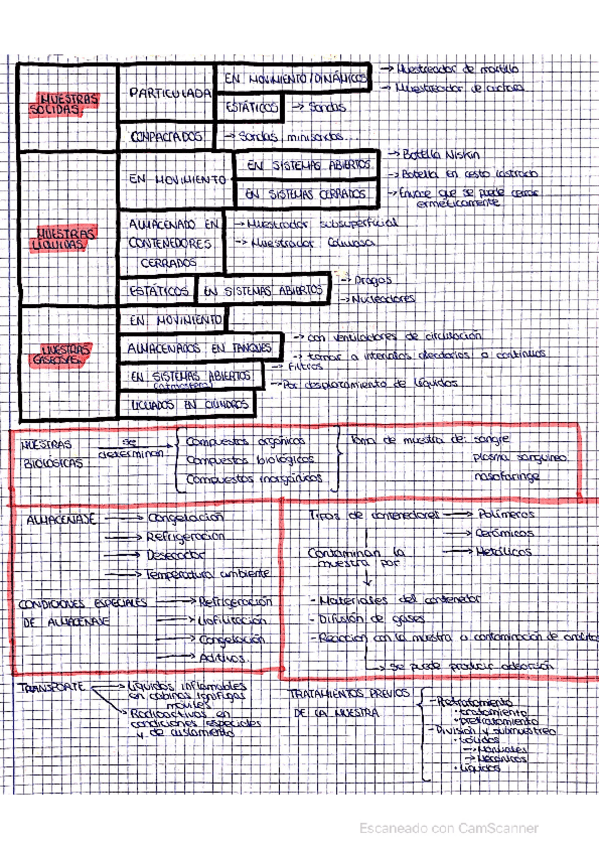 MUESTRAS SOLIDAS
PARTICULADA
EN MOVIMIENTO/DINÁMICOS
→ Muestreador de martillo
→ Muestreador de
ESTÁTICOS → Sondas
COMPACTADOS → Sondas, minisondas...
MUESTRAS LÍQUIDAS
EN MOVIMIENTO
EN SISTEMAS ABIERTOS
→ Botella Niskin
→ Botella en cesto lastrado
EN SISTEMAS CERRADOS
→ Envase que se puede cerrar
ermeticamente
ALMACENADO EN
CONTENEDORES
CERRADOS
→ Muestreador subsuperficial
→ Muestreador Coliwasa
ESTÁTICOS EN SISTEMAS ABIERTOS
→ Dragas
→ Nucleadores
MUESTRAS GASEOSAS
EN MOVIMIENTO
ALMACENADOS EN TANQUES
→ con ventiladores de circulación
→ tomar a intervalos aleatorios o continuos
EN SISTEMAS ABIERTOS
(atmosfera)
→ Filtros
→ Por desplazamiento de líquidos
LICUADOS EN CILINDROS
MUESTRAS
BIOLOGICAS
se
determinan
Compuestos orgánicos
Compuestos biológicos
Compuestos inorgánicos
Toma de muestra de: sangre
plasma sanguineo
nasofaringe
ALMACENAJE → Congelación
→ Refrigeración
→ Desecador
→ Temperatura ambiente
CONDICIONES ESPECIALES
DE ALMACENAJE
→ Refrigeración
→ Liofilización
→ Congelación
→ Aditivos.
Tipos de contenedores → Polímeros
→ Cerámicos
→ Metálicos
Contaminan la
muestra por
- Materiales del contenedor
- Difusión de gases
- Reacción con la muestra o contaminación de
→ Se puede producir adsorción
TRANSPORTE
→ Líquidos inflamables
en cabinas ignífugas
móviles
→ Radioactivos en
condiciones especiales
y de aislamiento
TRATAMIENTOS PREVIOS
DE LA MUESTRA
- Pretratamiento
• tratamiento
• pretratamiento
- División y submuestreo
• Sólidos
→ Manuales
→ Mecánicos
• Líquidos
Escaneado con CamScanner